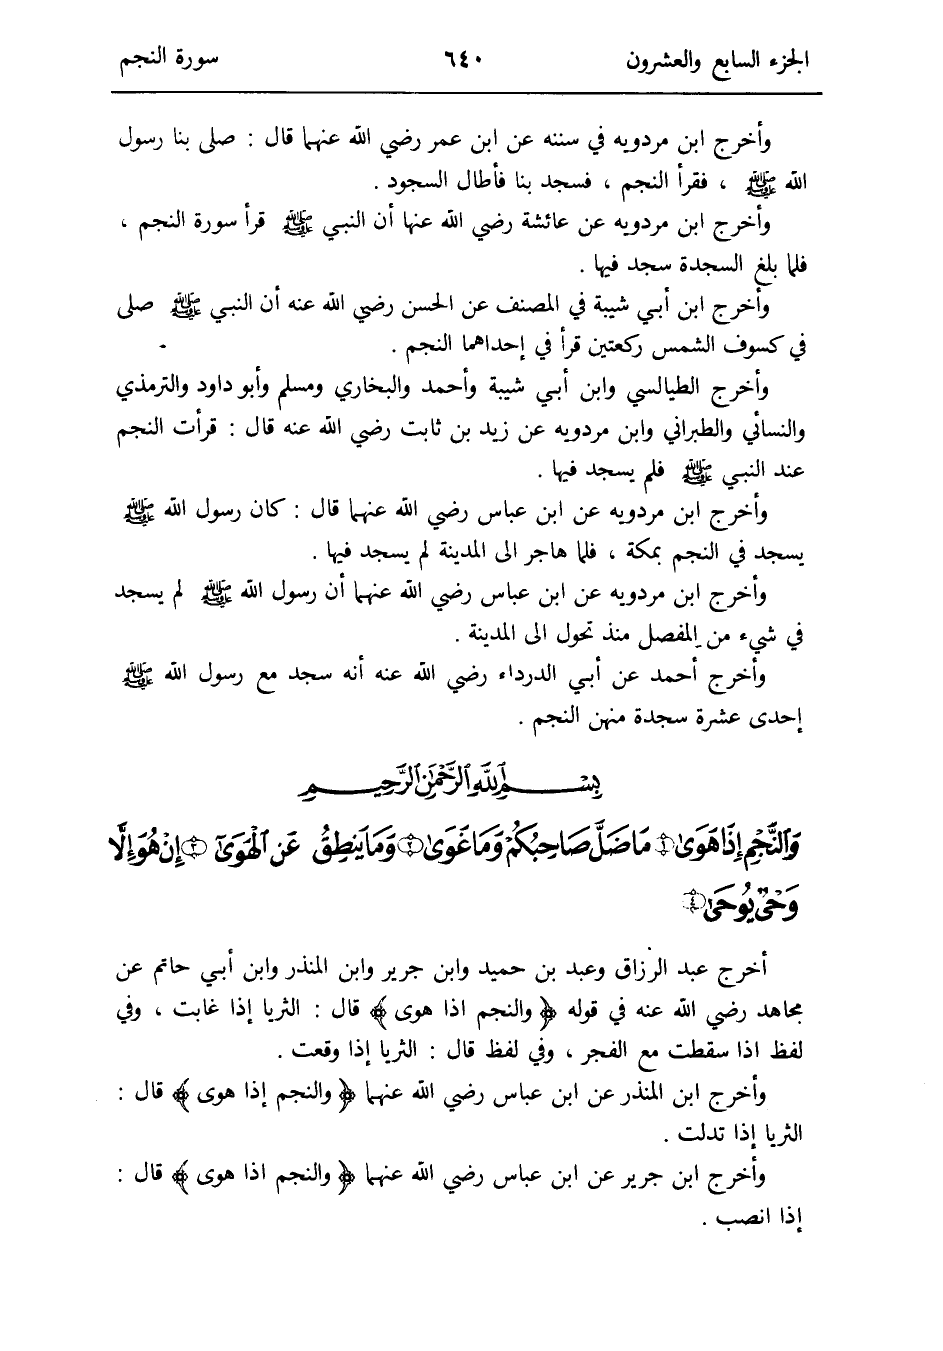 الجزء السابع والعشرون ٦٤٠ سورة النجم
وأخرج ابن مردويه في سننه عن ابن عمر رضي الله عنهما قال : صلى بنا رسول
الله ﷺ ، فقرأ النجم ، فسجد بنا فأطال السجود .
وأخرج ابن مردويه عن عائشة رضي الله عنها أن النبي ﷺ قرأ سورة النجم ،
فلما بلغ السجدة سجد فيها .
وأخرج ابن أبي شيبة في المصنف عن الحسن رضي الله عنه أن النبي ﷺ صلى
في كسوف الشمس ركعتين قرأ في إحداهما النجم .
وأخرج الطيالسي وابن أبي شيبة وأحمد والبخاري ومسلم وأبو داود والترمذي
والنسائي والطبراني وابن مردويه عن زيد بن ثابت رضي الله عنه قال : قرأت النجم
عند النبي ﷺ فلم يسجد فيها .
وأخرج ابن مردويه عن ابن عباس رضي الله عنهما قال : كان رسول الله ﷺ
يسجد في النجم بمكة ، فلما هاجر الى المدينة لم يسجد فيها .
وأخرج ابن مردويه عن ابن عباس رضي الله عنهما أن رسول الله ﷺ لم يسجد
في شيء من المفصل منذ تحول الى المدينة .
وأخرج أحمد عن أبي الدرداء رضي الله عنه أنه سجد مع رسول الله ﷺ
إحدى عشرة سجدة منهن النجم .
بِسْمِ ٱللَّهِ ٱلرَّحْمَٰنِ ٱلرَّحِيمِ
وَٱلنَّجْمِ إِذَا هَوَىٰ ١ مَا ضَلَّ صَاحِبُكُمْ وَمَا غَوَىٰ ٢ وَمَا يَنطِقُ عَنِ ٱلْهَوَىٰٓ ٣ إِنْ هُوَ إِلَّا
وَحْىٌ يُوحَىٰ ٤
أخرج عبد الرزاق وعبد بن حميد وابن جرير وابن المنذر وابن أبي حاتم عن
مجاهد رضي الله عنه في قوله ﴿ والنجم اذا هوى ﴾ قال : الثريا إذا غابت ، وفي
لفظ اذا سقطت مع الفجر ، وفي لفظ قال : الثريا إذا وقعت .
وأخرج ابن المنذر عن ابن عباس رضي الله عنهما ﴿ والنجم إذا هوى ﴾ قال :
الثريا إذا تدلت .
وأخرج ابن جرير عن ابن عباس رضي الله عنهما ﴿ والنجم اذا هوى ﴾ قال :
إذا انصب .